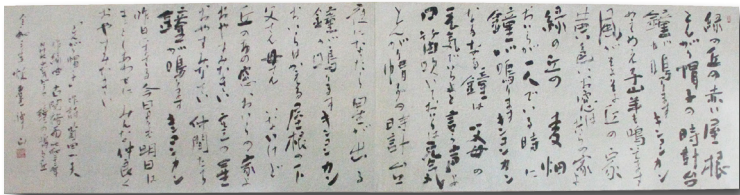 緑の丘の赤い屋根
とんがり帽子の時計台
鐘が鳴りますキンコンカン
メーメー子山羊も鳴いてます
風がそよそよ丘の家
黄色いお窓はおいらの家よ
緑の丘の麦畑
おいらが一人でいる時に
鐘が鳴りますキンコンカン
なるなる鐘は父母の
元気でいろよと言う声よ
口笛吹いておいらは元気
とんがり帽子の時計台
夜になったら星が出る
鐘が鳴りますキンコンカン
おいらはかえる屋根の下
父さん母さんいないけど
丘のあの窓おいらの家よ
おやすみなさい空の星
おやすみなさい仲間たち
鐘が鳴りますキンコンカン
昨日にまさる今日よりも明日は
もっとしあわせにみんな仲良く
おやすみなさい